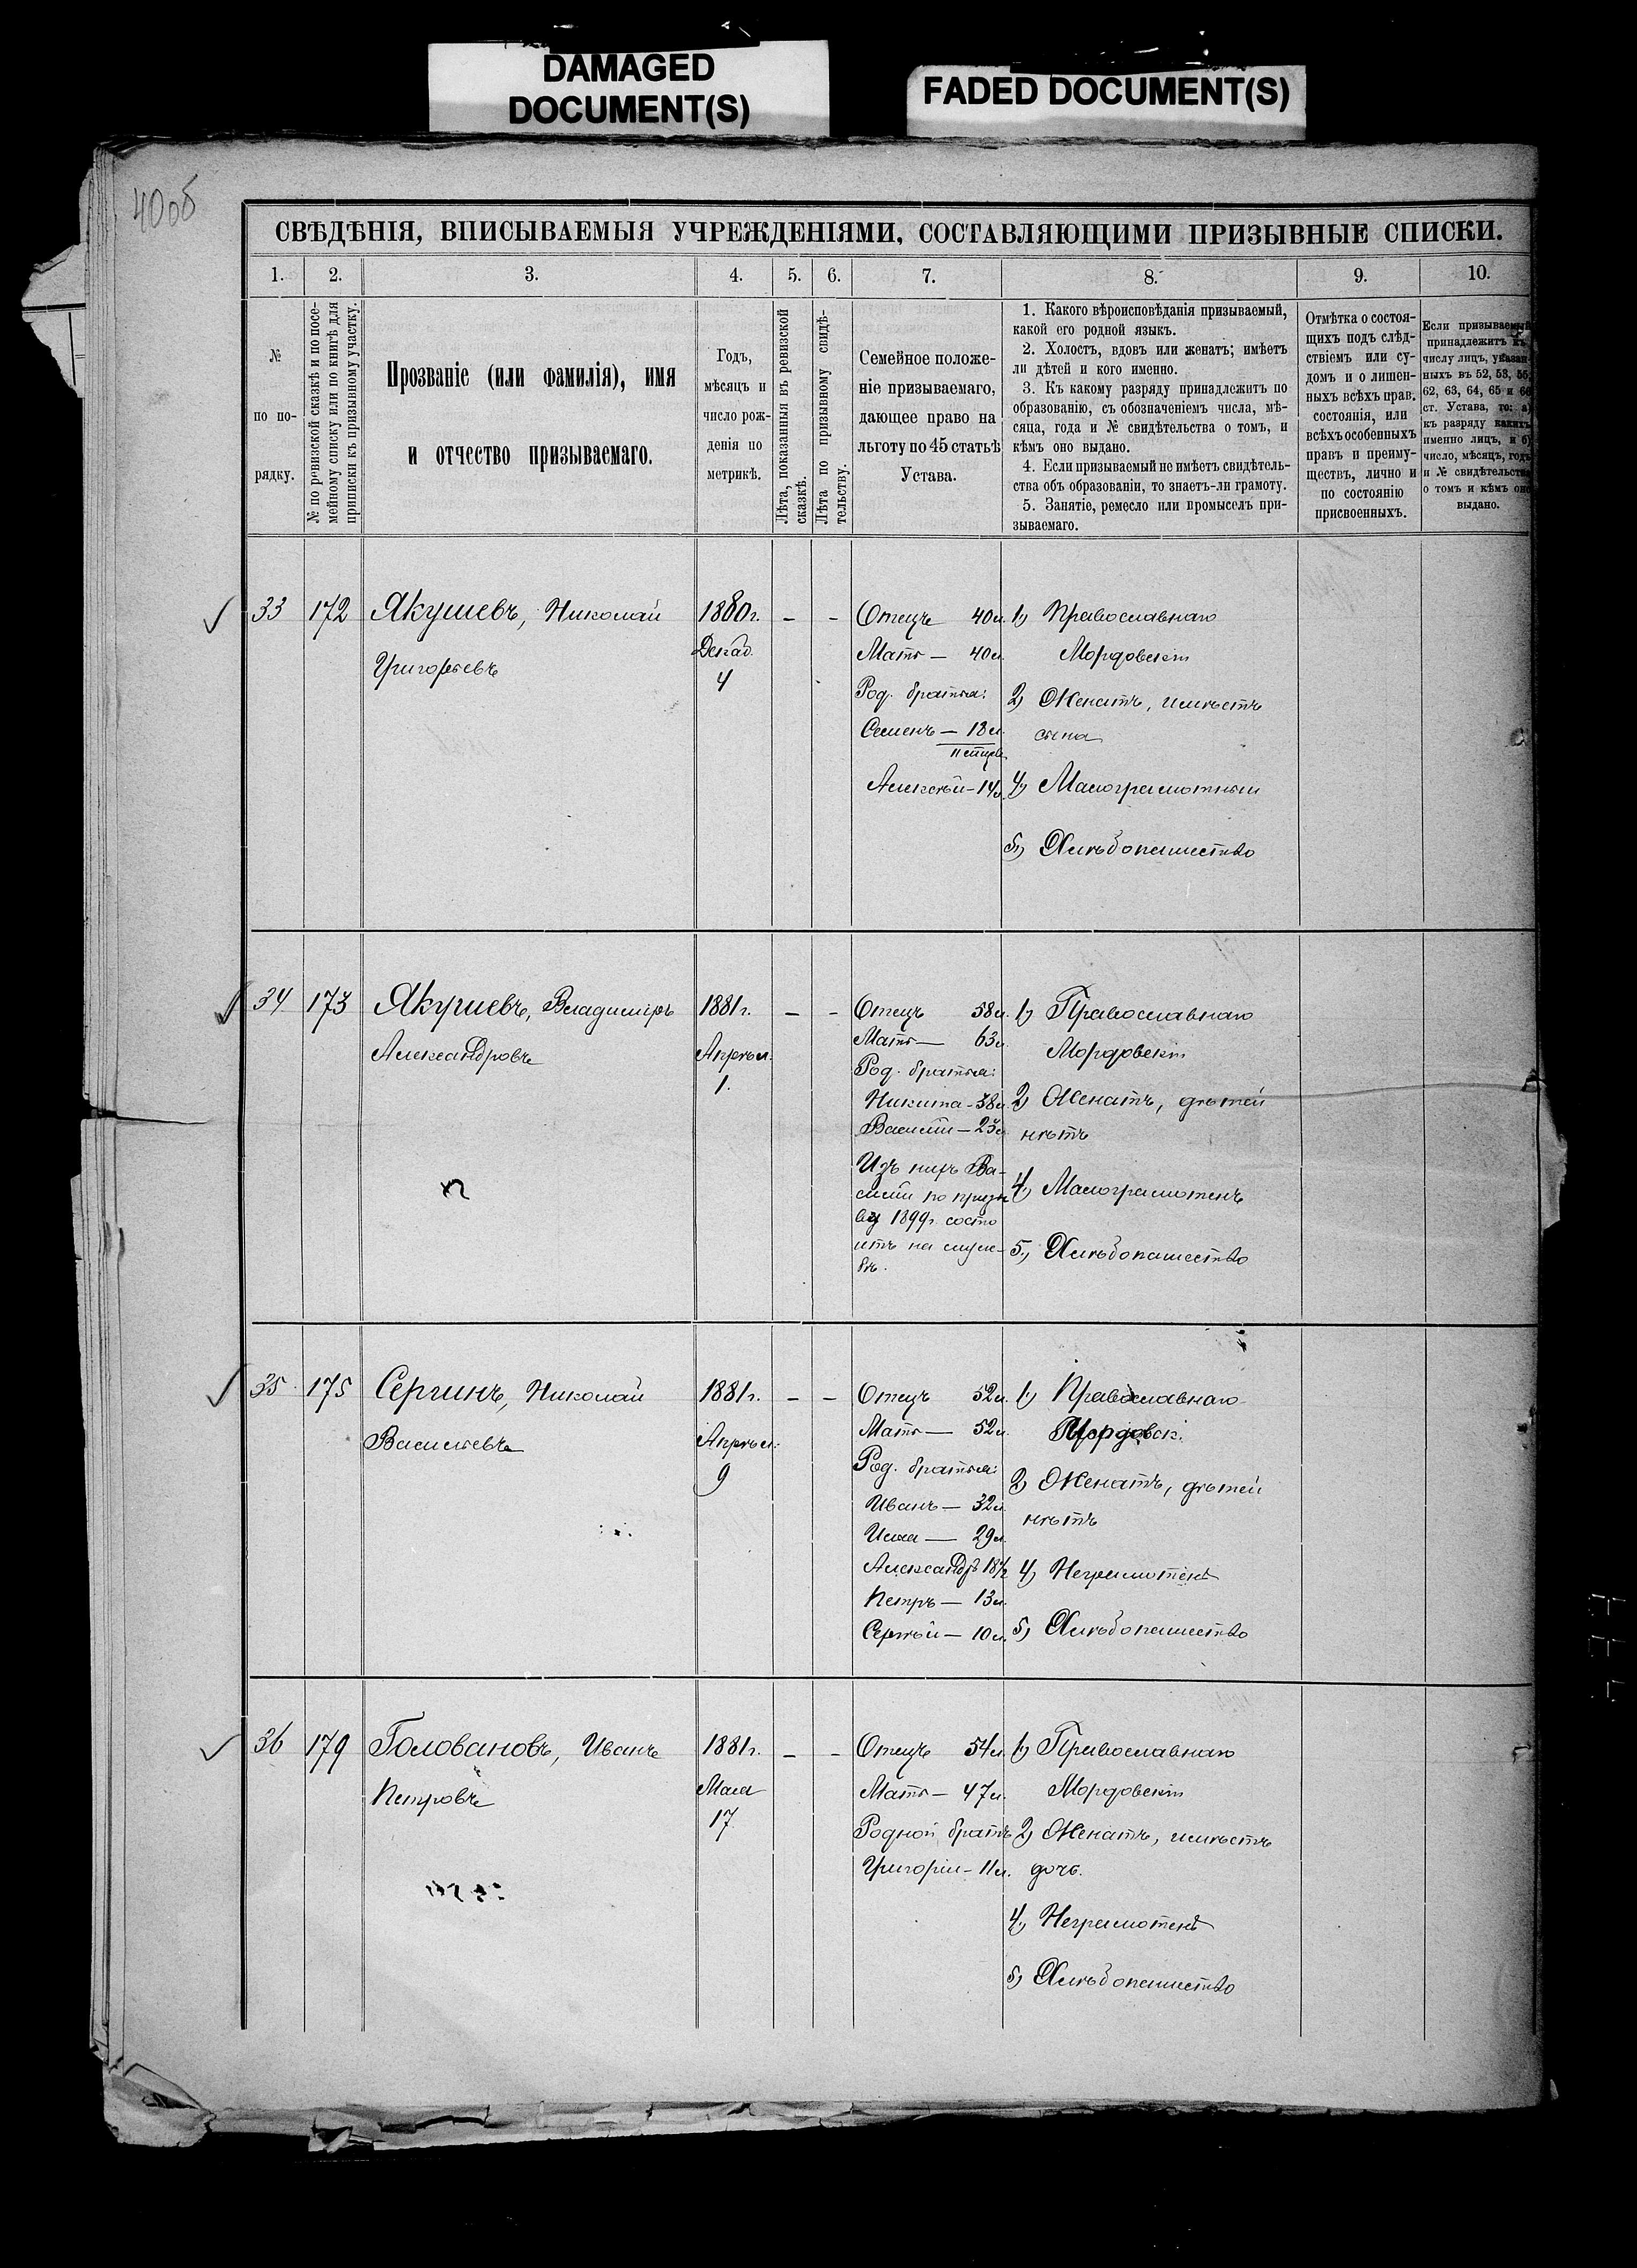 DAMAGED
DOCUMENT(S)
FADED DOCUMENT(S)
40об
СВѢДѢНІЯ, ВПИСЫВАЕМЫЯ УЧРЕЖДЕНІЯМИ, СОСТАВЛЯЮЩИМИ ПРИЗЫВНЫЕ СПИСКИ.
1. 2. 3. 4. 5. 6. 7. 8. 9. 10.
№
по по-
рядку.
№ по ревизской сказкѣ и по посе-
мейному списку или по книгѣ для
приписки къ призывному участку.
Прозваніе (или фамилія), имя
и отчество призываемаго.
Годъ,
мѣсяцъ и
число рож-
денія по
метрикѣ.
Лѣта, показанныя въ ревизской
сказкѣ.
Лѣта по призывному свидѣ-
тельству.
Семейное положе-
ніе призываемаго,
дающее право на
льготу по 45 статьѣ
Устава.
1. Какого вѣроисповѣданія призываемый,
какой его родной языкъ.
2. Холостъ, вдовъ или женатъ; имѣетъ
ли дѣтей и кого именно.
3. Къ какому разряду принадлежитъ по
образованію, съ обозначеніемъ числа, мѣ-
сяца, года и № свидѣтельства о томъ, и
кѣмъ оно выдано.
4. Если призываемый не имѣетъ свидѣтель-
ства объ образованіи, то знаетъ-ли грамоту.
5. Занятіе, ремесло или промыселъ при-
зываемаго.
Отмѣтка о состоя-
щихъ подъ слѣд-
ствіемъ или су-
домъ и о лишен-
ныхъ всѣхъ прав.
состоянія, или
всѣхъ особенныхъ
правъ и преиму-
ществъ, лично и
по состоянію
присвоенныхъ.
Если призываемый
принадлежитъ къ
числу лицъ, указан-
ныхъ въ 52, 53, 56,
62, 63, 64, 65 и 66
ст. Устава, то: а)
къ разряду какихъ
именно лицъ, и б)
число, мѣсяцъ, годъ
и № свидѣтельства
о томъ и кѣмъ оно
выдано.
33 172 Якушевъ, Николай
Григорьевъ
1880г.
Декаб.
4
– –
Отецъ 40л.
Мать – 40л.
Род. братья:
Семенъ – 18л.
Алексѣй – 14л.
1) Православнаго
Мордовскій
2) Женатъ, имѣетъ
сына
4) Малограмотный
5) Хлѣбопашество
34 173 Якушевъ, Владимиръ
Александровъ
1881г.
Апрѣл.
1.
– –
Отецъ 58л.
Мать – 63л.
Род. братья:
Никита – 38л.
Василій – 23л.
Изъ нихъ Ва-
силій по призы
ву 1899г. состо
итъ на служ-
бѣ.
1) Православнаго
Мордовскій
2) Женатъ, дѣтей
нѣтъ
4) Малограмотенъ
5) Хлѣбопашество
35 175 Сергинъ, Николай
Васильевъ
1881г.
Апрѣл.
9
– –
Отецъ 52л.
Мать – 52л.
Род. братья:
Иванъ – 32л.
Илья – 29л.
Александръ 18½
Петръ – 13л.
Сергѣй – 10л.
1) Православнаго
Мордовск.
2) Женатъ, дѣтей
нѣтъ
4) Неграмотенъ
5) Хлѣбопашество
36 179 Головановъ, Иванъ
Петровъ
1881г.
Мая
17
– –
Отецъ 54л.
Мать – 47л.
Родной братъ
Григорій – 11л.
1) Православнаго
Мордовскій
2) Женатъ, имѣетъ
дочь.
4) Неграмотенъ
5) Хлѣбопашество